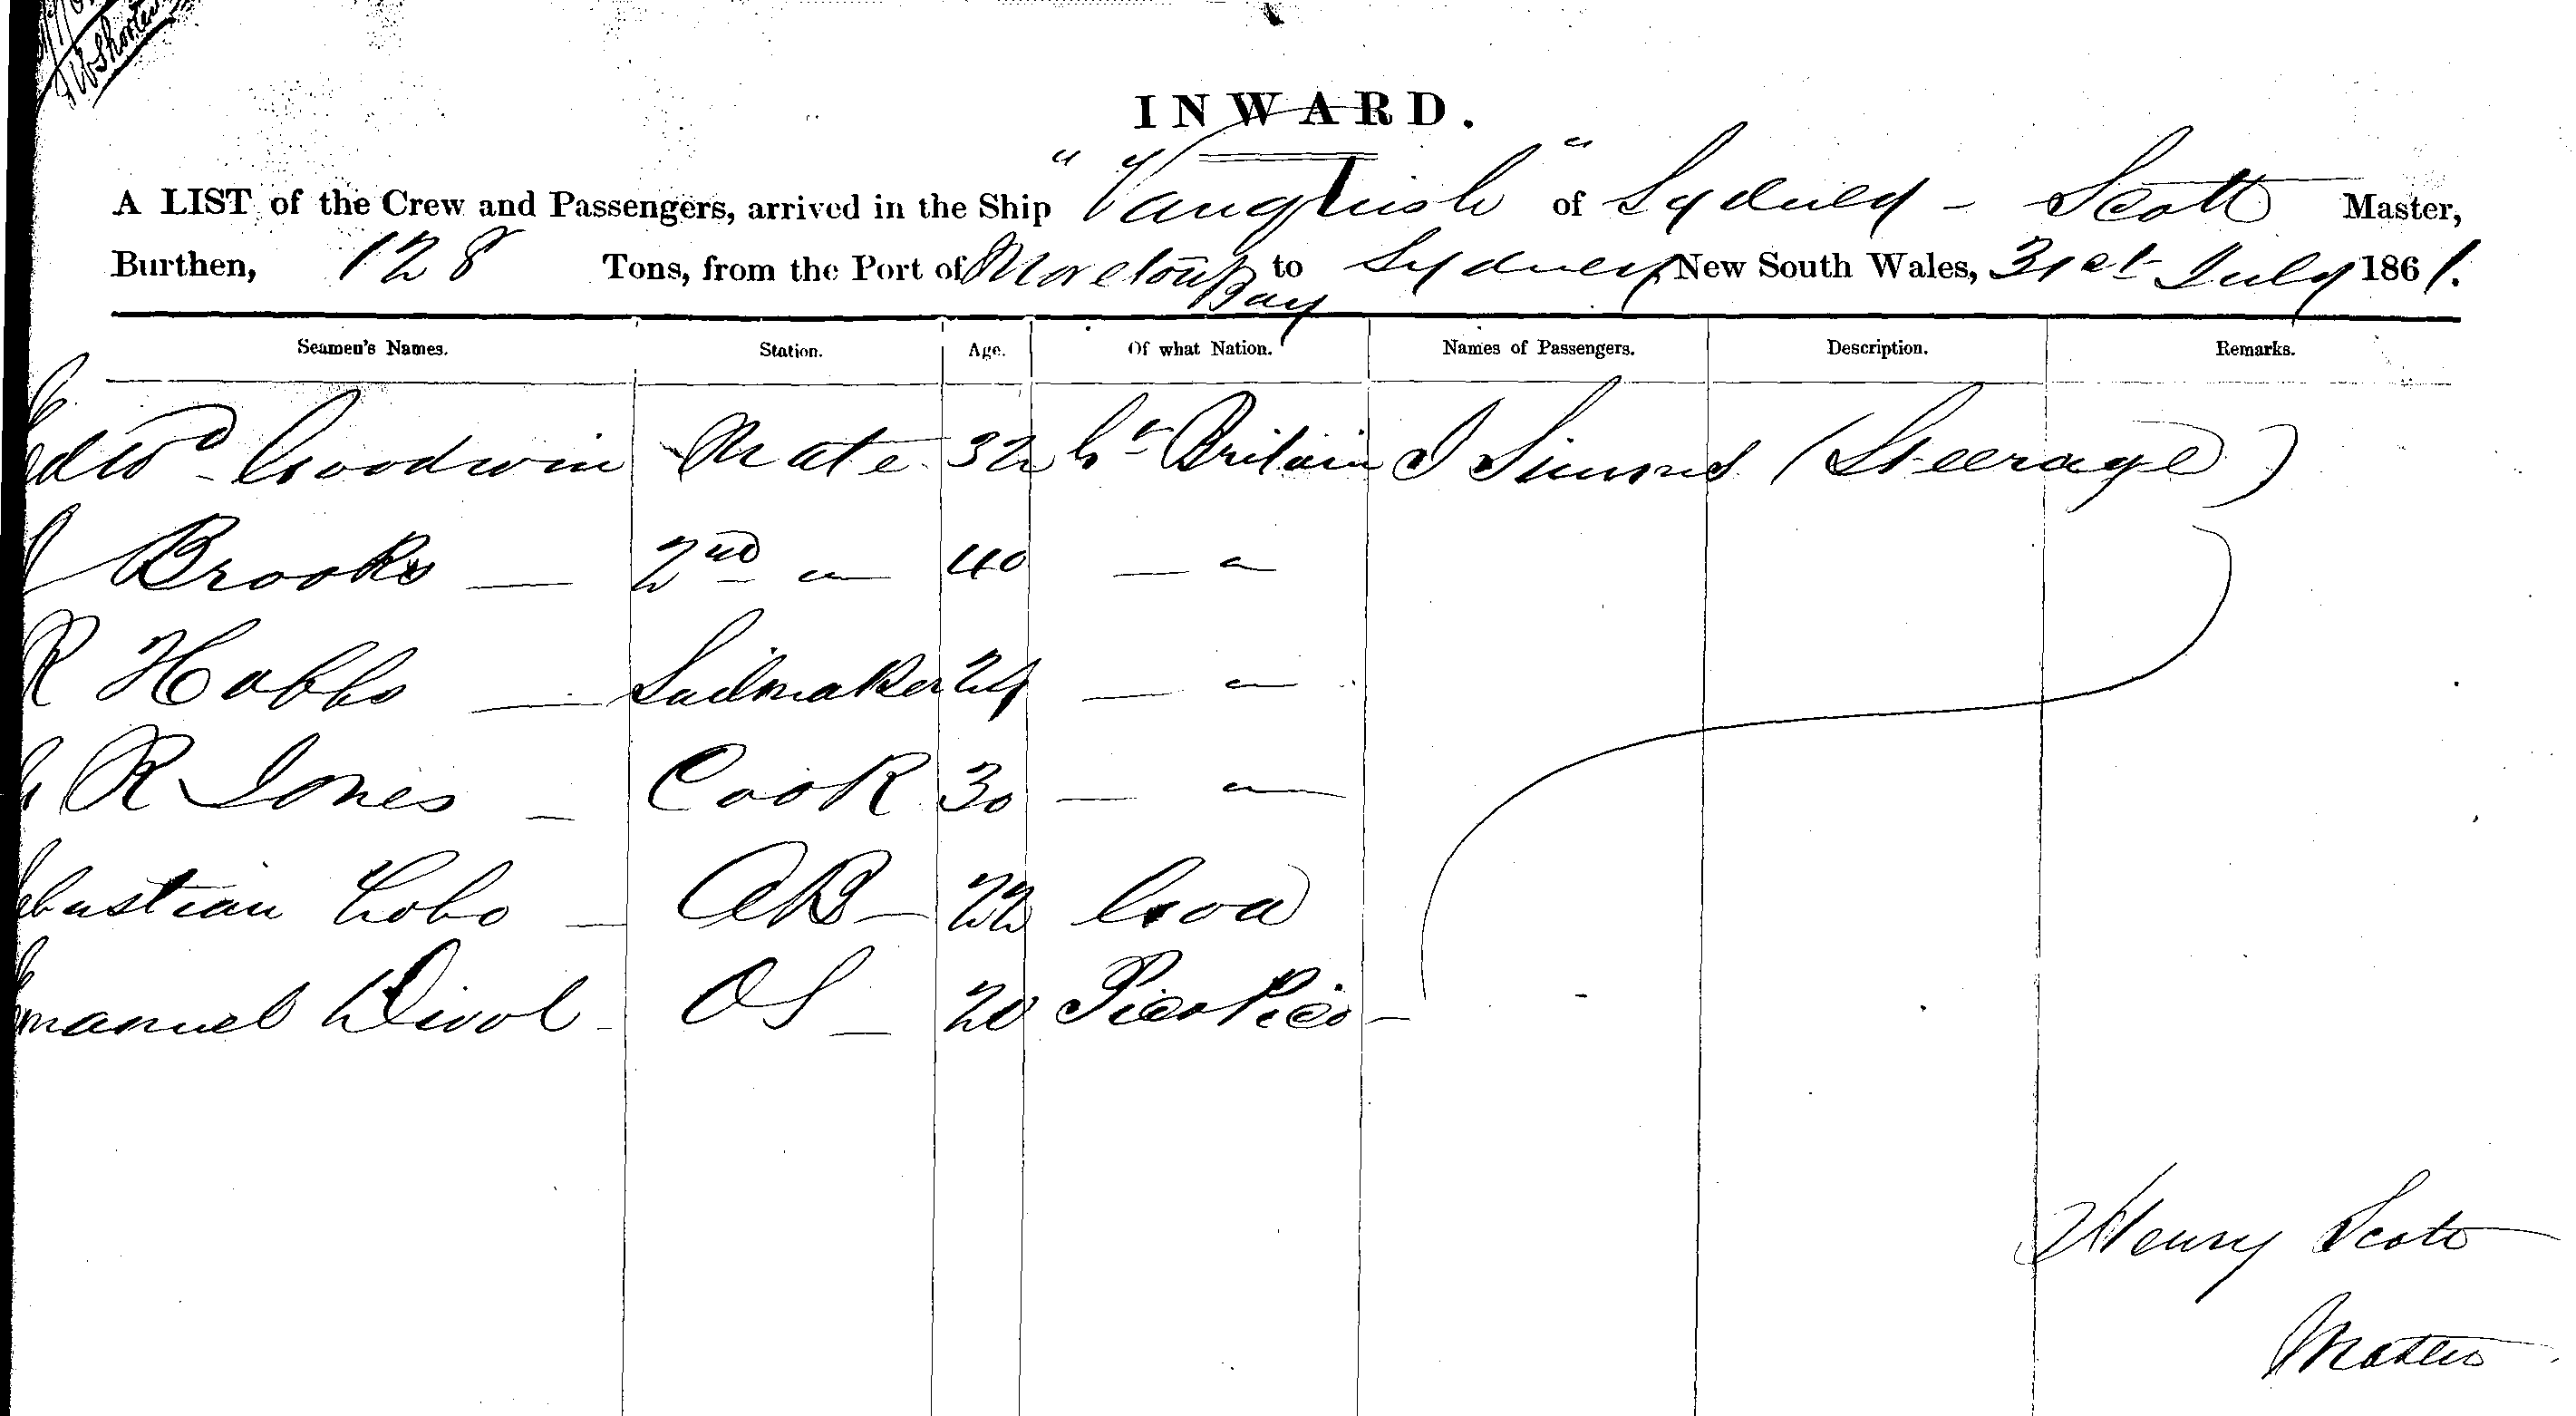 INWARD.
A LIST of the Crew and Passengers, arrived in the Ship "Vanquish" of Sydney - Scott Master,
Burthen, 128 Tons, from the Port of Moreton Bay to Sydney New South Wales, 31st July 1861.
Seamen's Names. Station. Age. Of what Nation. Names of Passengers. Description. Remarks.
Edwd Goodwin Mate 32 Gt Britain J Simms (Steerage)
J Brooks — 2nd " — 40 — "
R Hobbs — Sailmaker 24 — "
R Jones — Cook 30 — "
Sebastian Lobo — AB — 22 Goa
Emanuel OS — 20
Henry Scott
Master